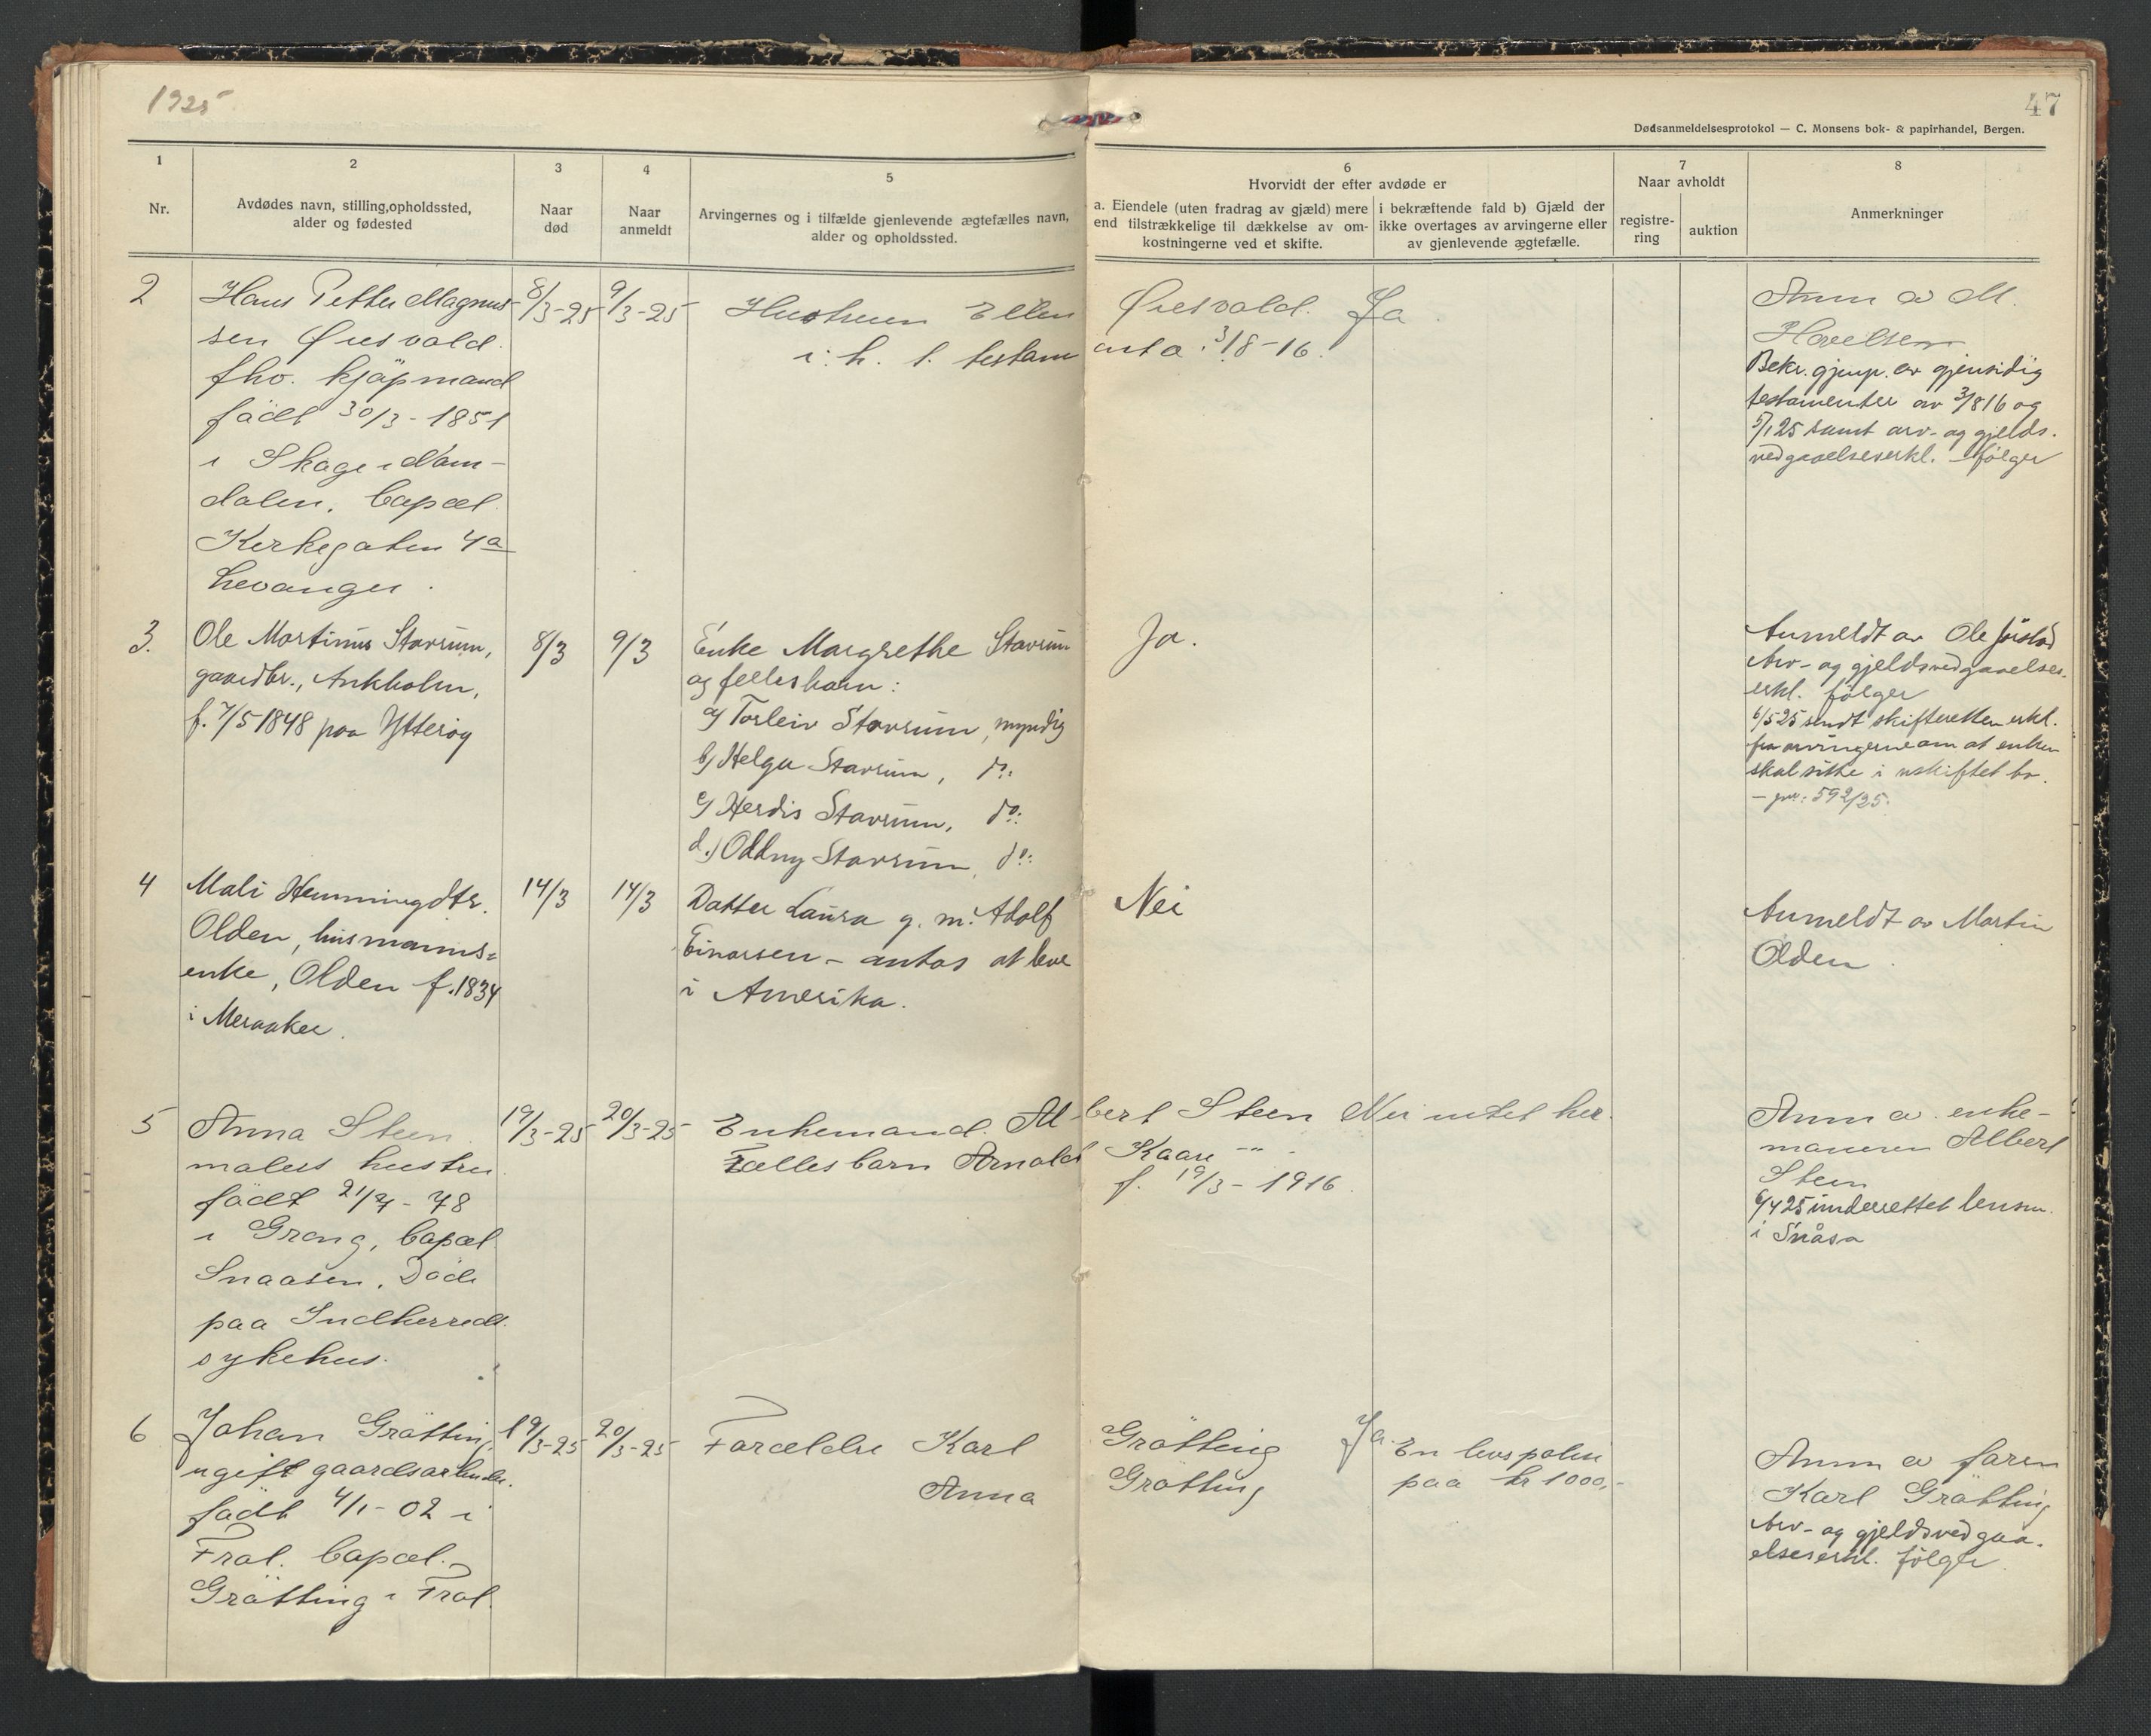 1925
47
Dødsanmeldelsesprotokol — C. Monsens bok- & papirhandel, Bergen.
1
Nr.
2
Avdødes navn, stilling, opholdssted,
alder og fødested
3
Naar
død
4
Naar
anmeldt
5
Arvingernes og i tilfælde gjenlevende ægtefælles navn,
alder og opholdssted.
6
Hvorvidt der efter avdøde er
a. Eiendele (uten fradrag av gjæld) mere
end tilstrækkelige til dækkelse av om-
kostningerne ved et skifte.
i bekræftende fald b) Gjæld der
ikke overtages av arvingerne eller
av gjenlevende ægtefælle.
7
Naar avholdt
registre-
ring
auktion
8
Anmerkninger
2
Hans Petter Magnus-
sen Øiesvold
fhv. kjøpmand
født 30/3-1851
i Skage i Nam-
dalen, bopæl
Kirkegaten 4a
Levanger.
8/3-25
9/3-25
Hustruen Ellen Øiesvold.
i h. t. testamenta 3/8-16.
Ja.
Anm av M.
Havelsen
Bekr. gjenp. av gjensidig
testamenter av 3/816 og
5/125 samt arv- og gjelds-
vedgaaelseserkl. følger
3.
Ole Martinus Stavrum,
gaardbr., Ankholm,
f. 7/5 1848 paa Ytterøy
8/3
9/3
Enke Margrethe Stavrum
og fellesbarn:
a) Torleiv Stavrum, myndig
b) Helga Stavrum, do:
c) Herdis Stavrum, do:
d.) Oddny Stavrum, do:
Ja.
Anmeldt av Ole Jørstad
Arv- og gjeldsvedgaaelses-
erkl. følger
6/525 sendt skifteretten erkl.
fra arvingerne om at enken
skal sitte i uskiftet bo.
— jnr: 592/25.
4
Mali Hemmingdtr.
Olden, husmanns=
enke, Olden f. 1834
i Meraaker.
14/3
14/3
Datter Laura g. m. Adolf
Einarsen – antas at leve
i Amerika.
Nei
Anmeldt av Martin
Olden.
5
Anna Steen
malers hustru
født 21/4-78
i Grong, bopæl
Snaasen. Døde
paa Indherreds
sykehus.
19/3-25
20/3-25
Enkemand. Albert Steen
Fællesbarn Arnold Kaare —"—
f. 19/3-1916.
Nei intet her.
Anm av enke-
mannen Albert
Steen
6/425 underrettet lensm.
i Snåsa
6
Johan Grøtting,
ugift gaardsarbeider.
født 4/1-02 i
Frol. bopæl.
Grøtting i Frol.
19/3-25
20/3-25
Forældre Karl Grøtting
Anna Grøtting
Ja.
En livspolise
paa kr 1000,-
Anm av faren
Karl Grøtting
Arv- og gjeldsvedgaa-
elseserkl. følger.